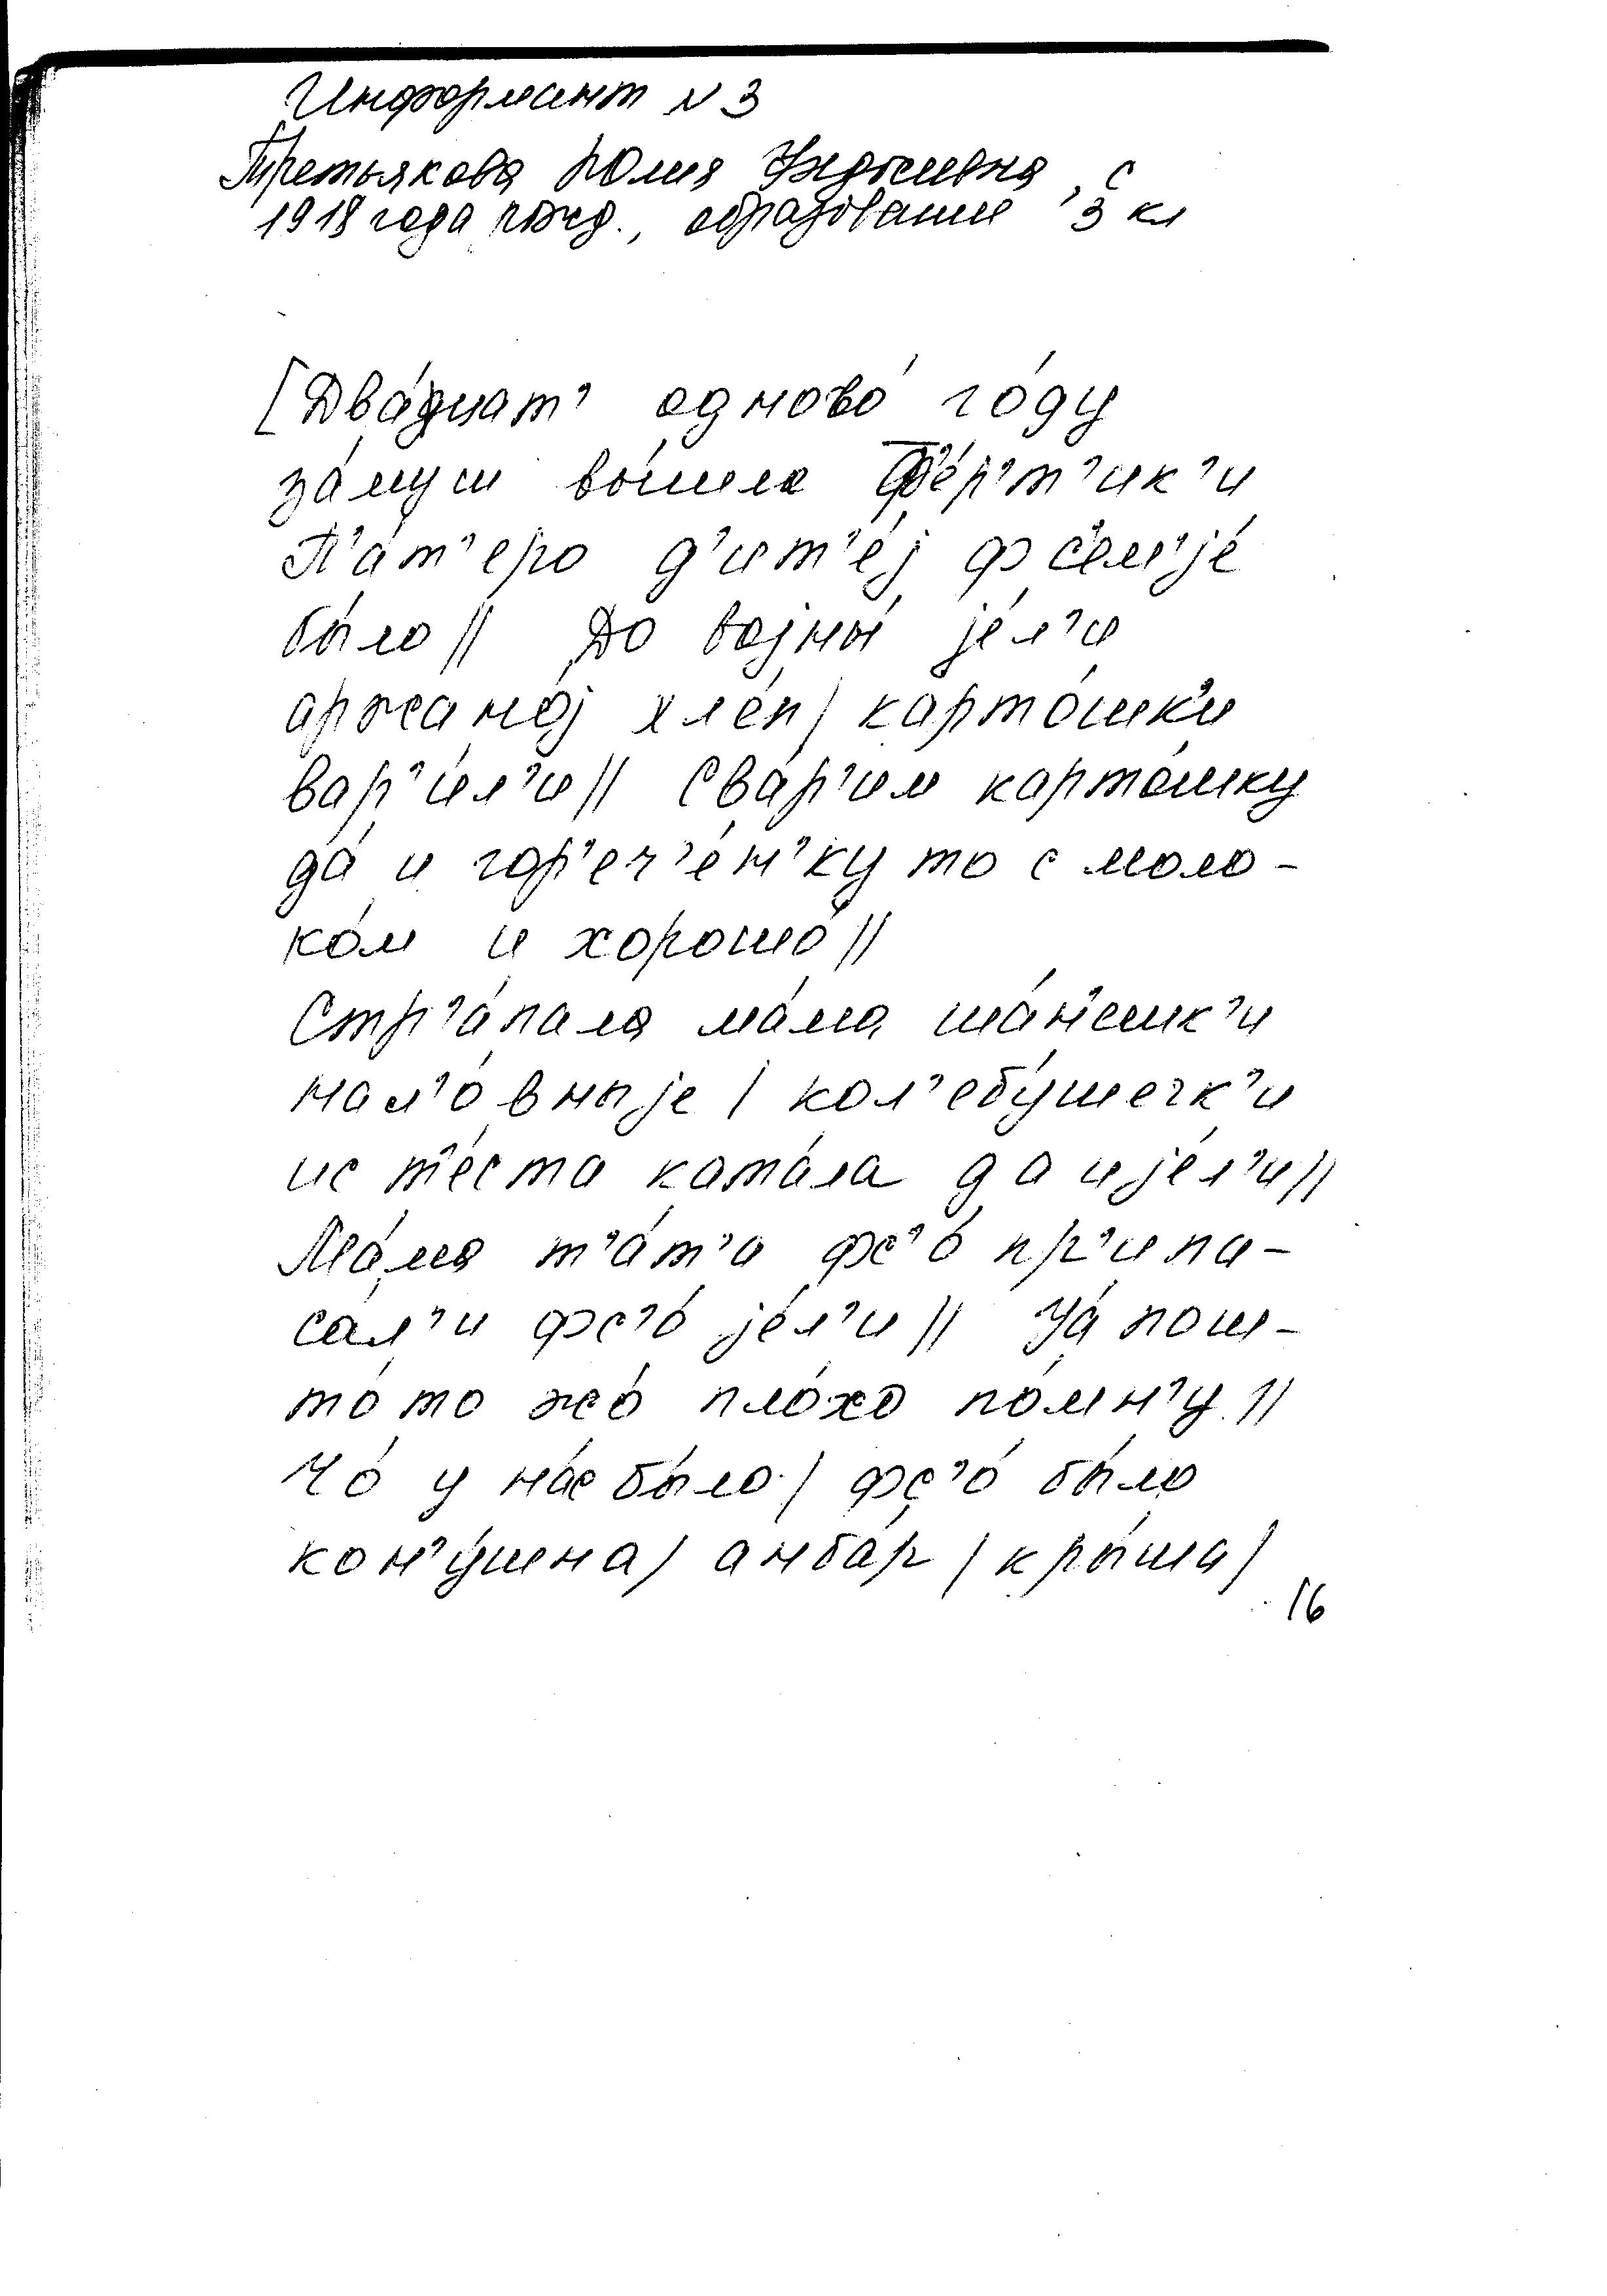 Информант N 3
Третьякова Юлия
1918 года рожд., образование 3 кл
[Два́дцат' одново́ го́ду
за́муш вы́шла Ф'е́р'т'ик'и
П'а́т'еро д'ит'е́j ф с'ем'jе́
бы́ло// До воjны́ jе́л'и
аржано́j хле́п/ карто́шк'и
вар'и́л'и// Сва́р'им карто́шку
да́ и гор'еч'е́н'ку то с моло-
ко́м и хорошо́//
Стр'а́пала ма́ма ша́н'ешк'и
нал'о́вныjе/ кол'ебу́шечк'и
ис т'е́ста ката́ла да и jе́л'и//
Ма́ма т'а́т'а фс'о́ пр'ипа-
са́л'и фс'о́ jе́л'и// Уа́ пош-
то́ то жо́ пло́хо по́мн'у//
Чо́ у на́с бы́ло/ фс'о́ бы́ло
кон'у́шна/ анба́р/ кры́ша/
16